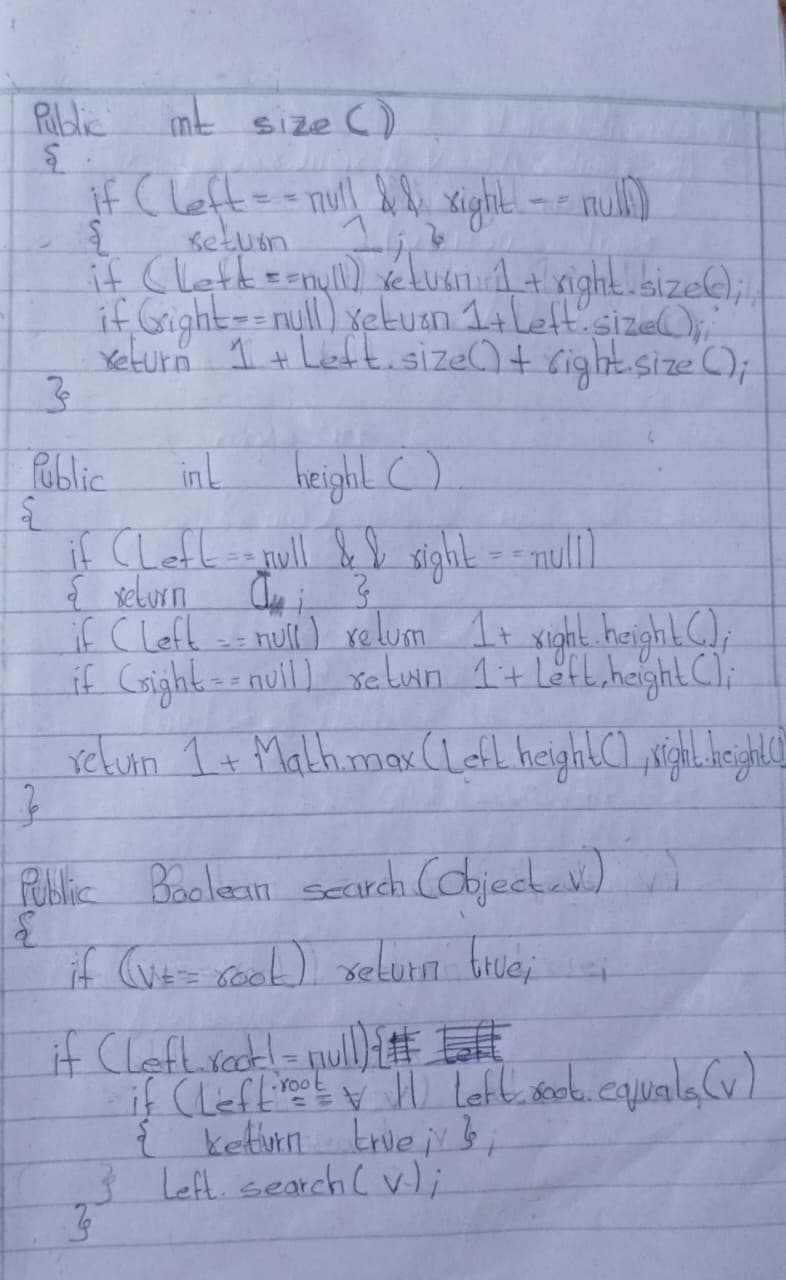 Public int size()
{
if (left == null && right == null)
{ return 1; }
if (left == null) return 1 + right.size();
if (right == null) return 1 + left.size();
return 1 + left.size() + right.size();
}
Public int height()
{
if (left == null && right == null)
{ return ; }
if (left == null) return 1 + right.height();
if (right == null) return 1 + left.height();
return 1 + Math.max(left.height(), right.height()
}
Public Boolean search(Object v)
{
if (v == root) return true;
if (left.root != null){
if (left.root == v || left.root.equals(v)
{ return true; };
} left.search(v);
}